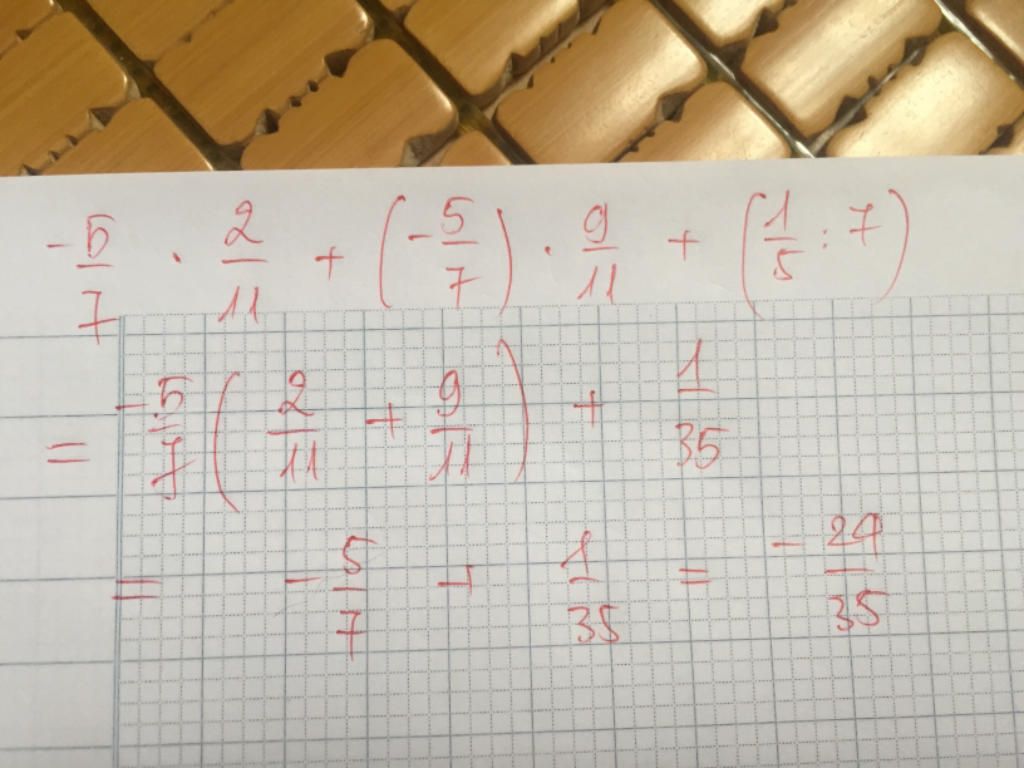 -5/7 · 2/11 + (-5/7) · 9/11 + (1/5 : 7)
= -5/7 (2/11 + 9/11) + 1/35
= -5/7 + 1/35 = -24/35